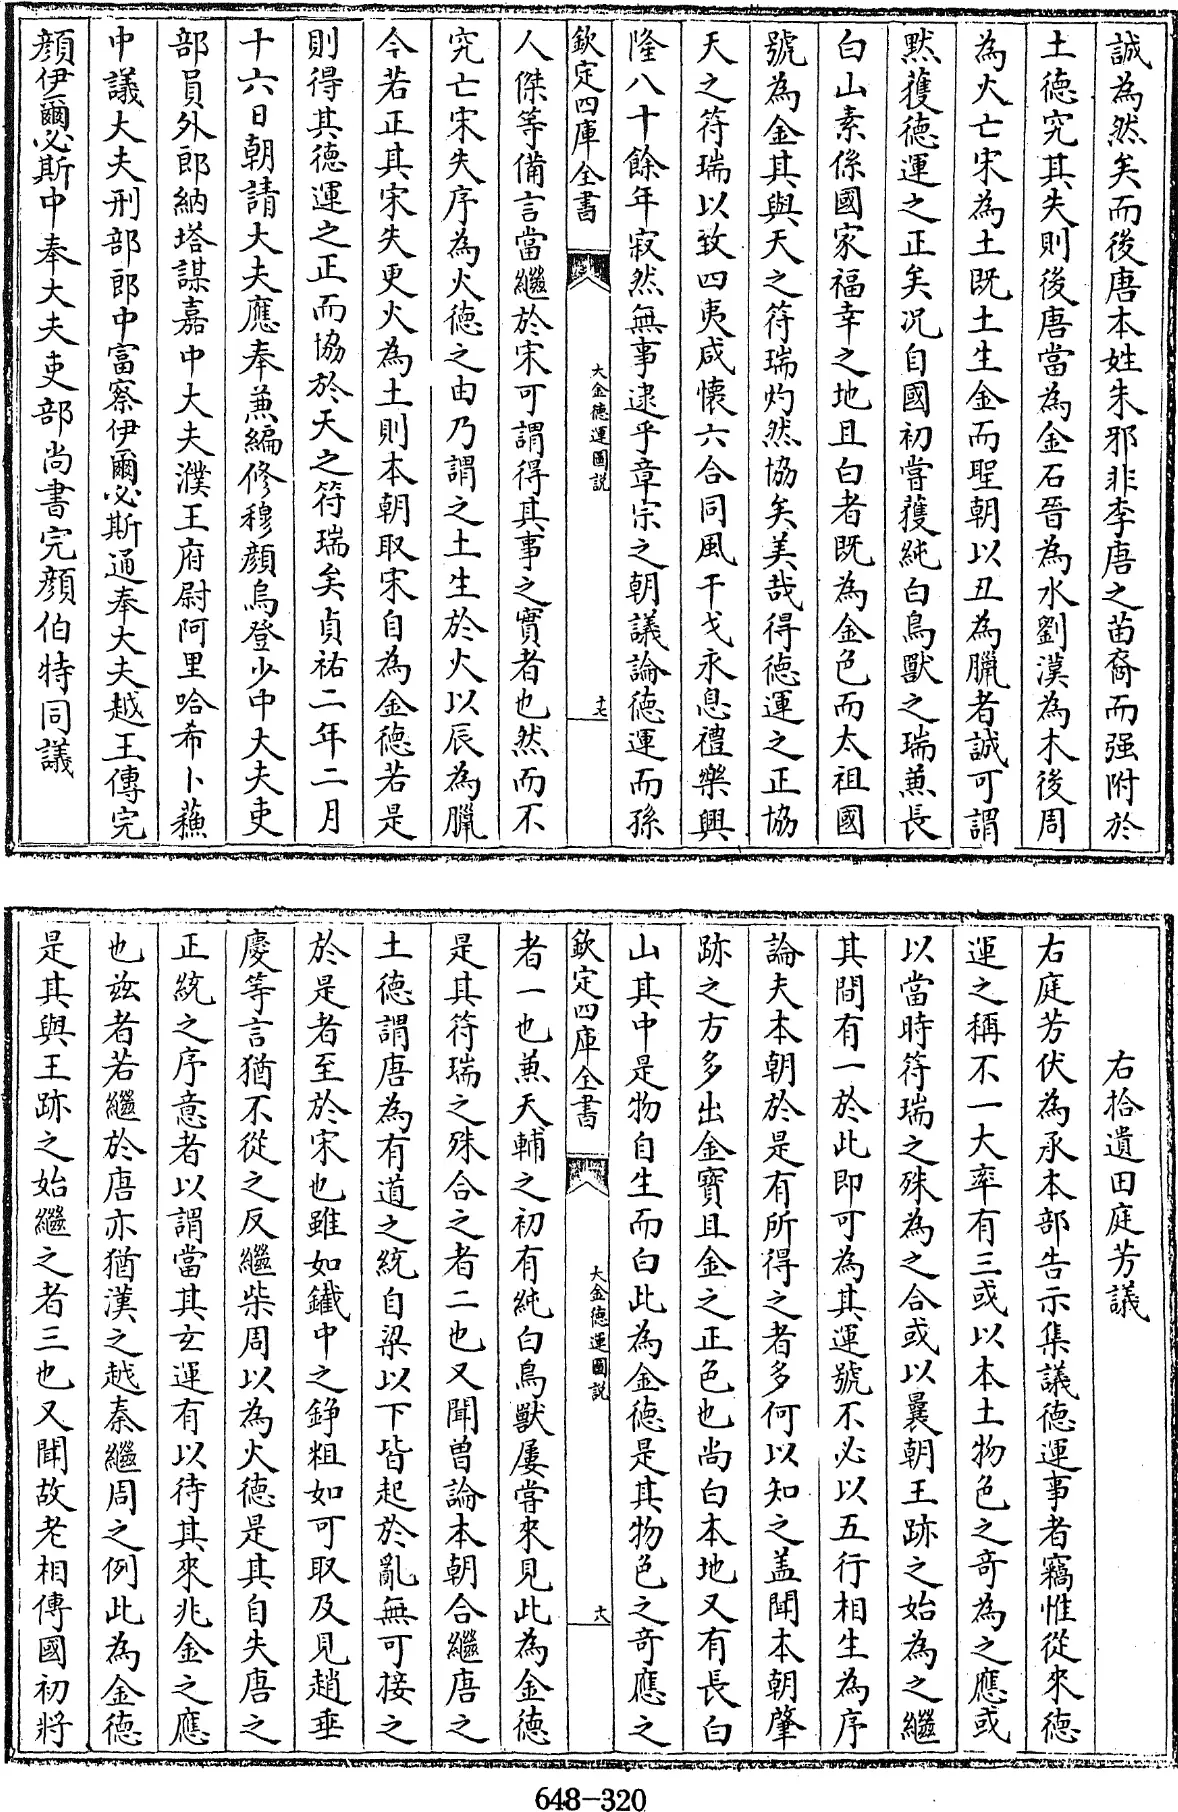 誠為然矣而後唐本姓朱邪非李唐之苗裔而强附於
土德究其失則後唐當為金石晉為水劉漢為木後周
為火亡宋為土既土生金而聖朝以丑為臘者誠可謂
默獲德運之正矣况自國初嘗獲純白鳥獸之瑞兼長
白山素係國家福幸之地且白者既為金色而太祖國
號為金其與天之符瑞灼然協矣美哉得德運之正協
天之符瑞以致四夷咸懷六合同風干戈永息禮樂興
隆八十餘年寂然無事逮乎章宗之朝議論德運而孫
欽定四庫全書
大金德運圖説
十七
人傑等備言當繼於宋可謂得其事之實者也然而不
究亡宋失序為火德之由乃謂之土生於火以辰為臘
今若正其宋失更火為土則本朝取宋自為金德若是
則得其德運之正而協於天之符瑞矣貞祐二年二月
十六日朝請大夫應奉兼編修穆顔烏登少中大夫吏
部員外郎納塔謀嘉中大夫濮王府尉阿里哈希卜蘓
中議大夫刑部郎中富察伊爾必斯通奉大夫越王傅完
顔伊爾必斯中奉大夫吏部尚書完顔伯特同議
右拾遺田庭芳議
右庭芳伏為承本部告示集議德運事者竊惟從來德
運之稱不一大率有三或以本土物色之奇為之應或
以當時符瑞之殊為之合或以曩朝王跡之始為之繼
其間有一於此即可為其運號不必以五行相生為序
論夫本朝於是有所得之者多何以知之盖聞本朝肇
跡之方多出金寶且金之正色也尚白本地又有長白
山其中是物自生而白此為金德是其物色之奇應之
欽定四庫全書
大金德運圖説
十八
者一也兼天輔之初有純白鳥獸屢嘗來見此為金德
是其符瑞之殊合之者二也又聞曾論本朝合繼唐之
土德謂唐為有道之統自梁以下皆起於亂無可接之
於是者至於宋也雖如鐵中之錚粗如可取及見趙垂
慶等言猶不從之反繼柴周以為火德是其自失唐之
正統之序意者以謂當其玄運有以待其來兆金之應
也兹者若繼於唐亦猶漢之越秦繼周之例此為金德
是其與王跡之始繼之者三也又聞故老相傳國初將
648-320